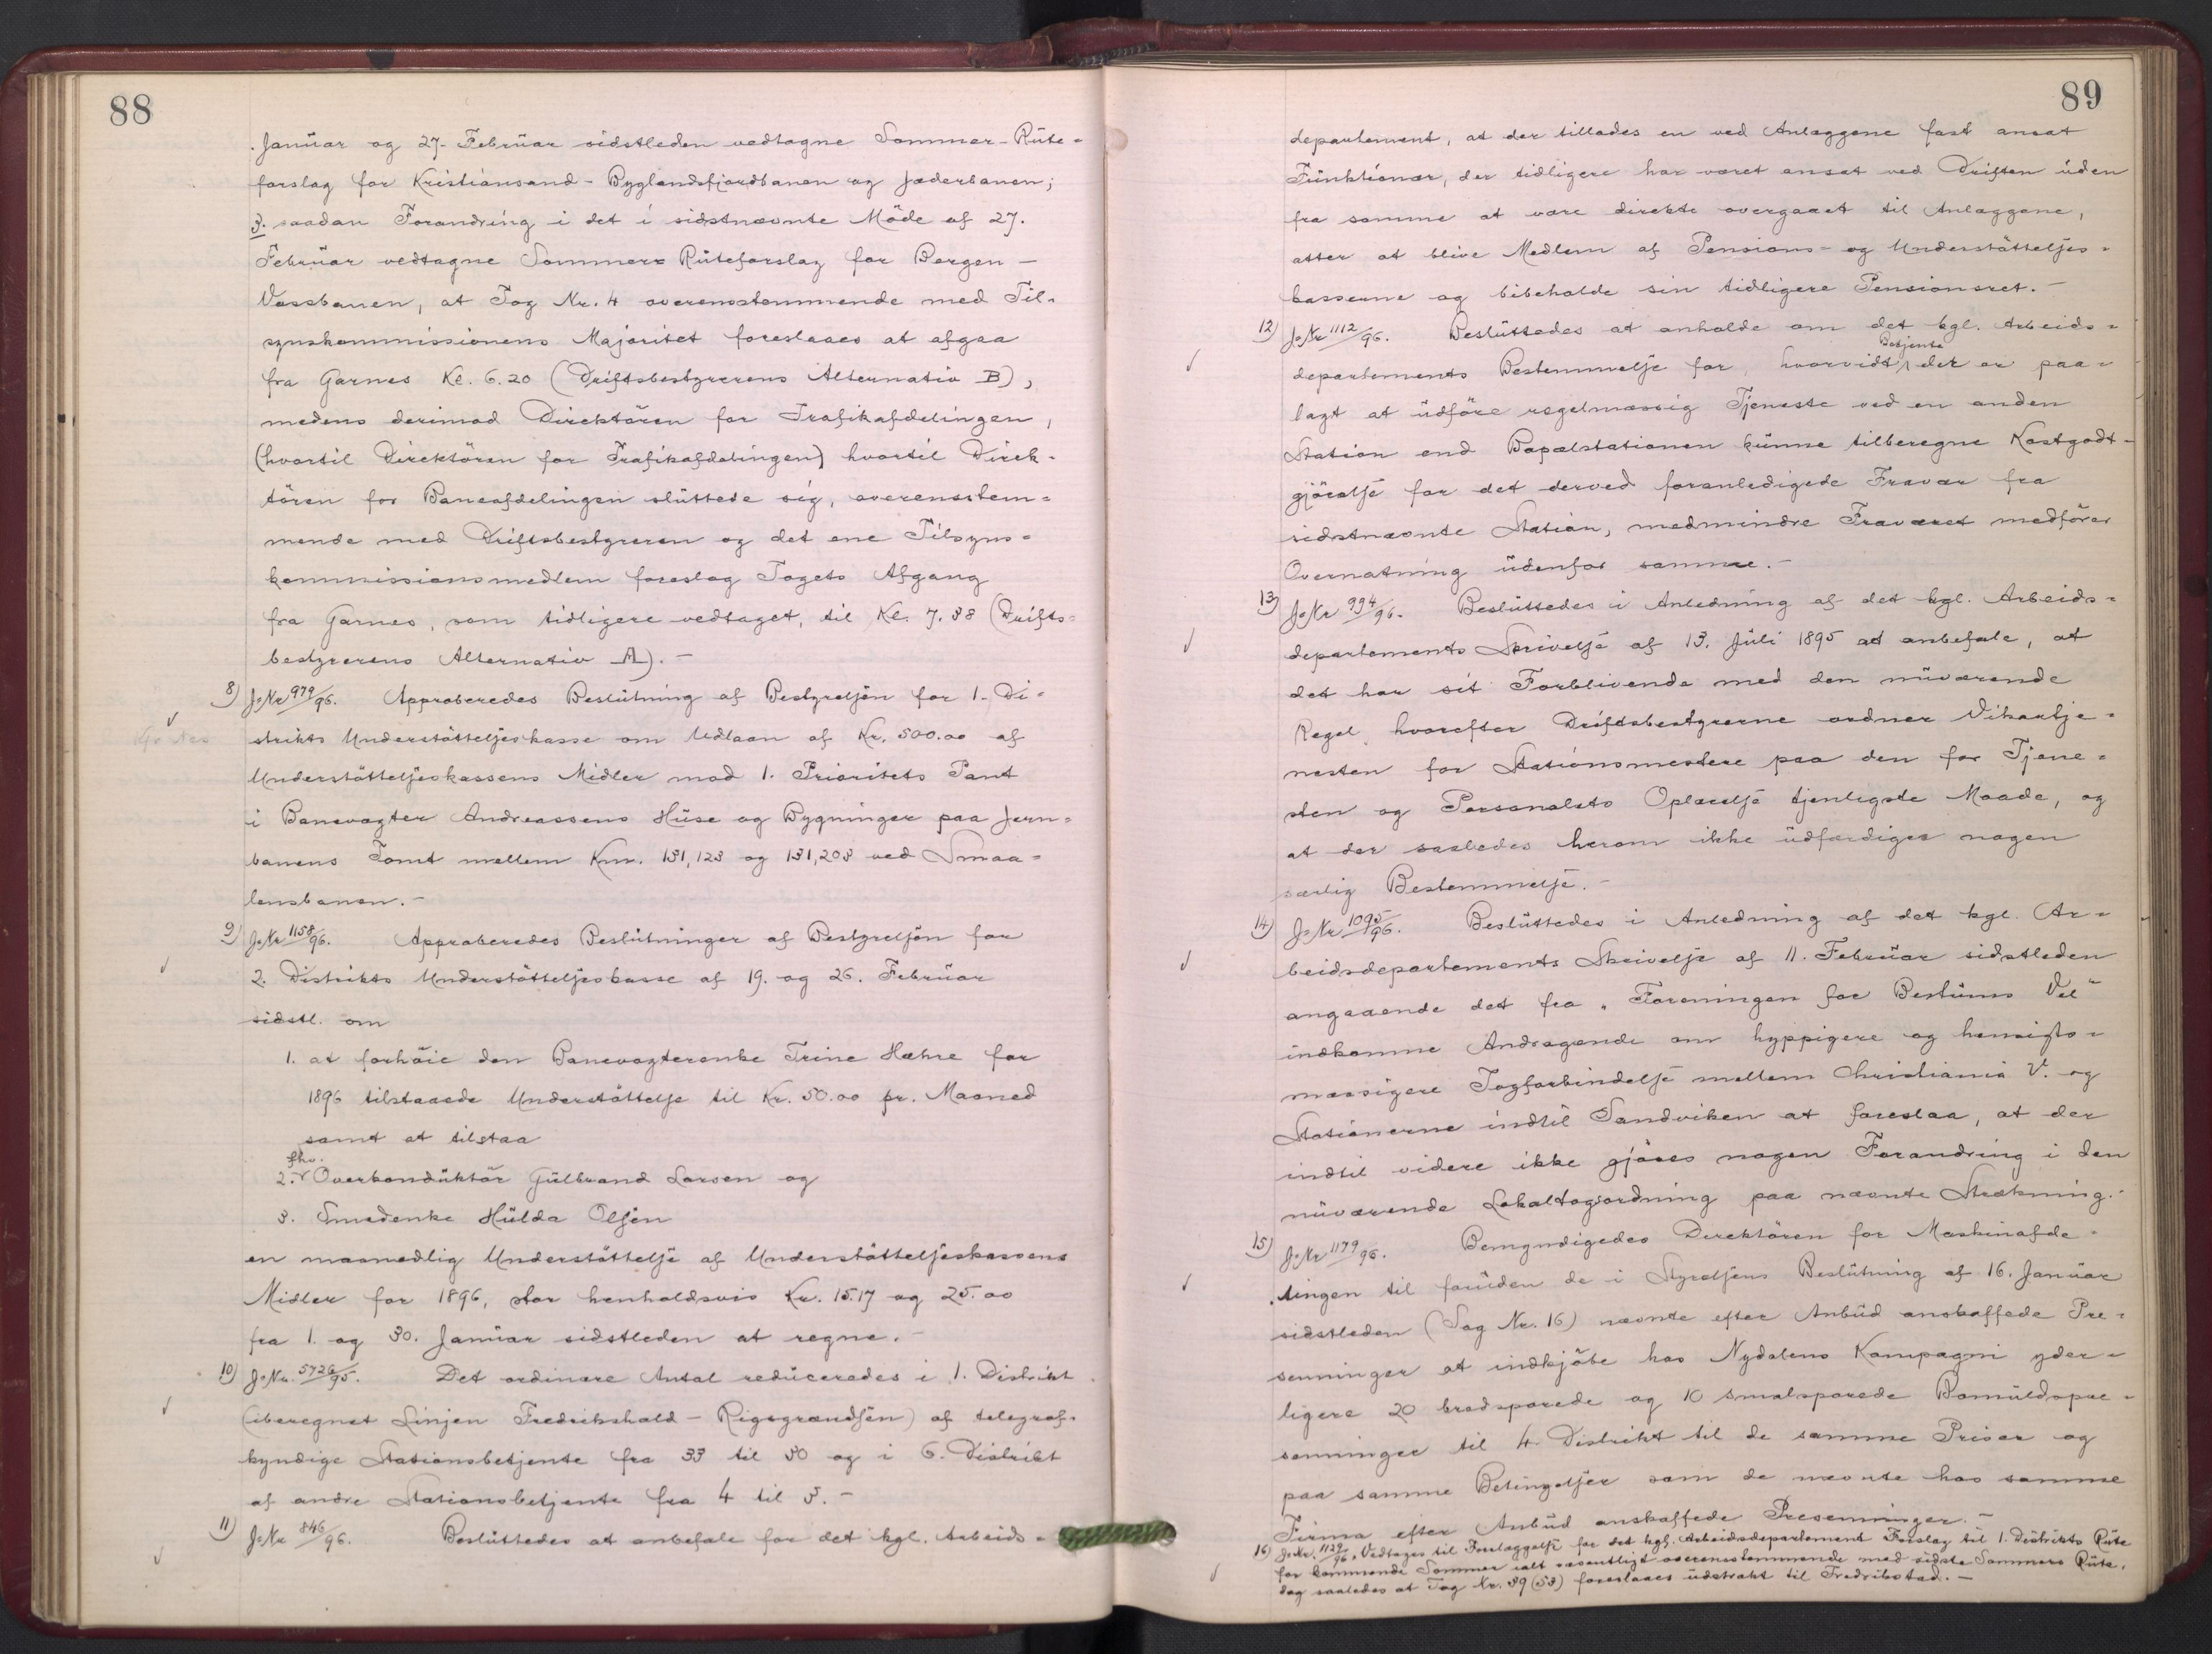 88
Januar og 27. Februar sidstleden vedtagne Sommer-Rute-
forslag for Kristiansand-Byglandsfjordbanen og Jæderbanen;
3. saadan Forandring i det i sidstnævnte Möde af 27.
Februar vedtagne Sommer-Ruteforslag for Bergen-
Vossbanen, at Tog Nr. 4 overensstemmende med Til-
synskommissionens Majoritet foreslaaes at afgaa
fra Garnes Kl. 6.20 (Driftsbestyrerens Alternativ B),
medens derimod Direktören for Trafikafdelingen,
(hvortil Direktören for Trafikafdelingen) hvortil Direk-
tören for Baneafdelingen sluttede sig, overensstem-
mende med Driftsbestyreren og det ene Tilsyns-
kommissionsmedlem foreslog Togets Afgang
fra Garnes, som tidligere vedtaget, til Kl. 7.38 (Drifts-
bestyrerens Alternativ A).-
8) J.Nr 979/96. Approberedes Beslutning af Bestyrelsen for 1. Di-
strikts Understöttelseskasse om Udlaan af Kr. 500.00 af
Understöttelseskassens Midler mod 1. Prioritets Pant
i Banevogter Andreassens Huse og Bygninger paa Jern-
banens Tomt mellem Km. 131,123 og 131,203 ved Smaa-
lensbanen.-
9) J.Nr 1158/96. Approberedes Beslutninger af Bestyrelsen for
2. Distrikts Understöttelseskasse af 19. og 26. Februar
sidstl. om
1. at forhöie den Banevogterenke Trine Hæhre for
1896 tilstaaede Understöttelse til Kr. 50.00 pr. Maaned
samt at tilstaa
fhv.
2. Overkonduktör Gulbrand Larsen og
3. Smedenke Hulda Olsen
en maanedlig Understöttelse af Understöttelseskassens
Midler for 1896, stor henholdsvis Kr. 15.17 og 25.00
fra 1. og 30. Januar sidstleden at regne.-
10) J.Nr. 5726/95. Det ordinære Antal reduceredes i 1. Distrikt
(iberegnet Linjen Fredrikshald-Rigsgrændsen) af telegraf-
kyndige Stationsbetjente fra 33 til 30 og i 6. Distrikt
af andre Stationsbetjente fra 4 til 3.-
11) J.Nr 846/96. Besluttedes at anbefale for det kgl. Arbeids-
89
departement, at der tillades en ved Anlæggene fast ansat
Funktionær, der tidligere har været ansat ved Driften uden
fra samme at være direkte overgaaet til Anlæggene,
atter at blive Medlem af Pensions- og Understöttelses-
kasserne og bibeholde sin tidligere Pensionsret.-
12) J.Nr 1112/96. Besluttedes at anholde om det kgl. Arbeids-
Betjente
departements Bestemmelse for, hvorvidt der er paa-
lagt at udföre regelmæssig Tjeneste ved en anden
Station end Bopælstationen kunne tilberegne Kostgodt-
gjörelse for det derved foranledigede Fravær fra
sidstnævnte Station, medmindre Fraværet medförer
Overnatning udenfor samme.-
13) J.Nr 994/96. Besluttedes i Anledning af det kgl. Arbeids-
departements Skrivelse af 13. Juli 1895 at anbefale, at
det har sit Forblivende med den nuværende
Regel, hvorefter Driftsbestyrerne ordner Vikartje-
nesten for Stationsmestere paa den for Tjene-
sten og Personalets Oplærelse tjenligste Maade, og
at der saaledes herom ikke udfærdiges nogen
særlig Bestemmelse.-
14) J.Nr 1095/96. Besluttedes i Anledning af det kgl. Ar-
beidsdepartements Skrivelse af 11. Februar sidstleden
angaaende det fra "Foreningen for Bestums Vel"
indkomne Andragende om hyppigere og hensigts-
mæssigere Togforbindelse mellem Christiania V. og
Stationerne indtil Sandviken at foreslaa, at der
indtil videre ikke gjöres nogen Forandring i den
nuværende Lokaltogsordning paa nævnte Strækning.-
15) J.Nr 1179/96. Bemyndigedes Direktören for Maskinafde-
lingen til foruden de i Styrelsens Beslutning af 16. Januar
sidstleden (Sag Nr. 16) nævnte efter Anbud anskaffede Pre-
senninger at indkjöbe hos Nydalens Kompagni yder-
ligere 20 bredsporede og 10 smalsporede Bomuldspre-
senninger til 4. Distrikt til de samme Priser og
paa samme Betingelser som de nævnte hos samme
Firma efter Anbud anskaffede Presenninger.-
16) J.Nr. 1129/96. Vedtoges til Forelæggelse for det kgl. Arbeidsdepartement Forslag til 1. Distrikts Rute
for kommende Sommer i alt væsentligt overensstemmende med sidste Sommers Rute,
dog saaledes at Tog Nr. 39 (53) foreslaaes udstrakt til Fredrikstad.-